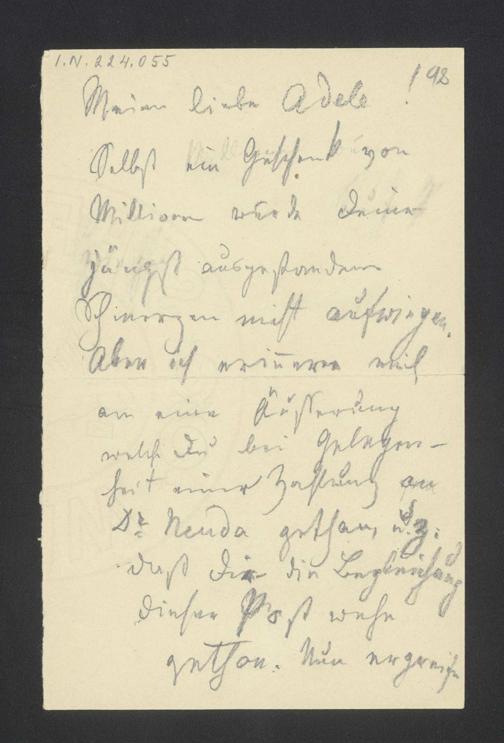 I.N. 224.055
! 92
Meine liebe Adele
Selbst ein Geschenk von
Millionen würde deine
jüngst ausgestandenen
Schmerzen nicht aufwiegen.
Aber ich erinnere mich
an eine Äußerung
welche Du bei Gelegen-
heit einer Zahlung an
Dr. Neuda gethan, u. z.
daß Dir die Begleichung
dieser Post wehe
gethan. Nun ergreife